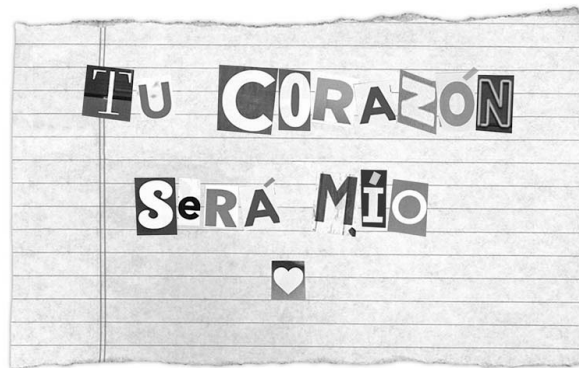 TÚ CORAZÓN
SeRÁ MÍO